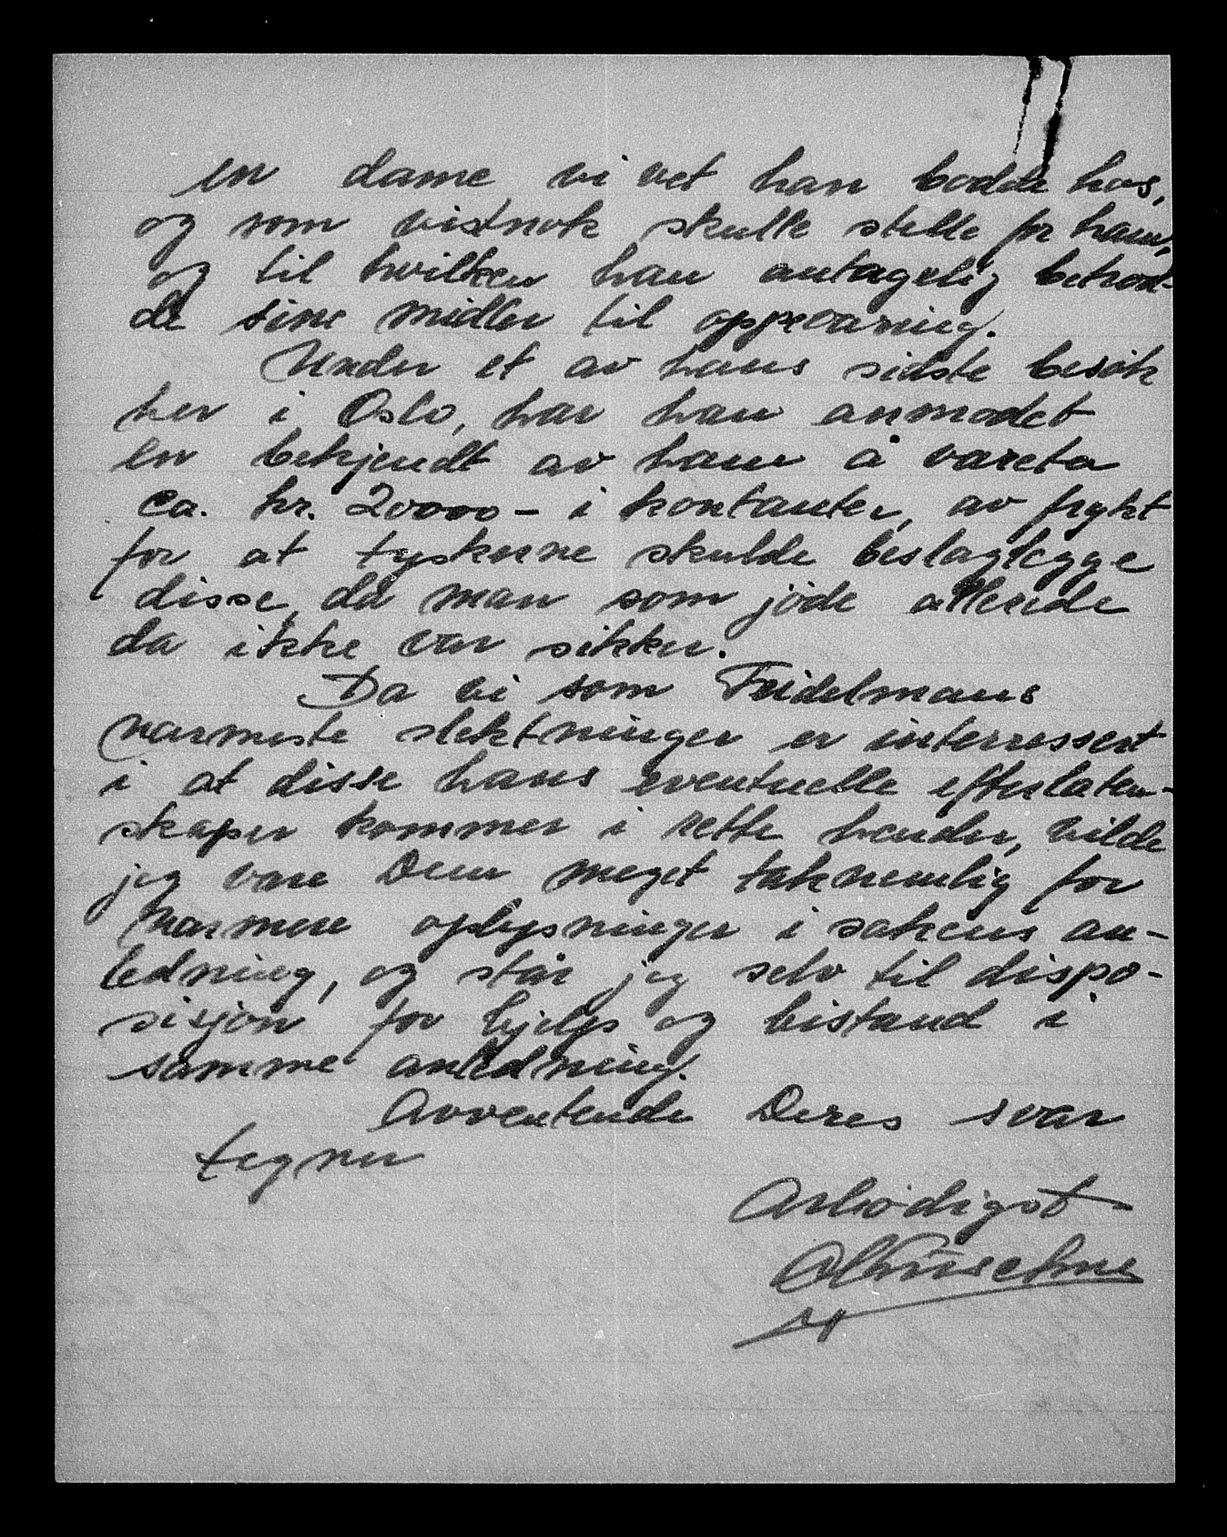 en dame vi vet han bodde hos,
og som vistnok skulle stelle for ham,
og til hvilken han antagelig betrod-
de sine midler til oppevaring.
Under et av hans sidste besøk
her i Oslo, har han anmodet
en bekjendt av ham å vareta
ca. kr. 20000- i kontanter, av frykt
for at tyskerne skulde beslaglegge
disse, da man som jøde allerede
da ikke var sikker.
Da vi som Feidelmans
nærmeste slektninger er interressert
i at disse hans eventuelle efterlaten-
skaper kommer i rette hender, vilde
jeg være Dem meget taknemlig for
nærmere oplysninger i sakens an-
ledning, og står jeg selv til dispo-
sisjon for hjelp og bistand i
samme anledning.
Avventende Deres svar
tegner
Ærbødigst